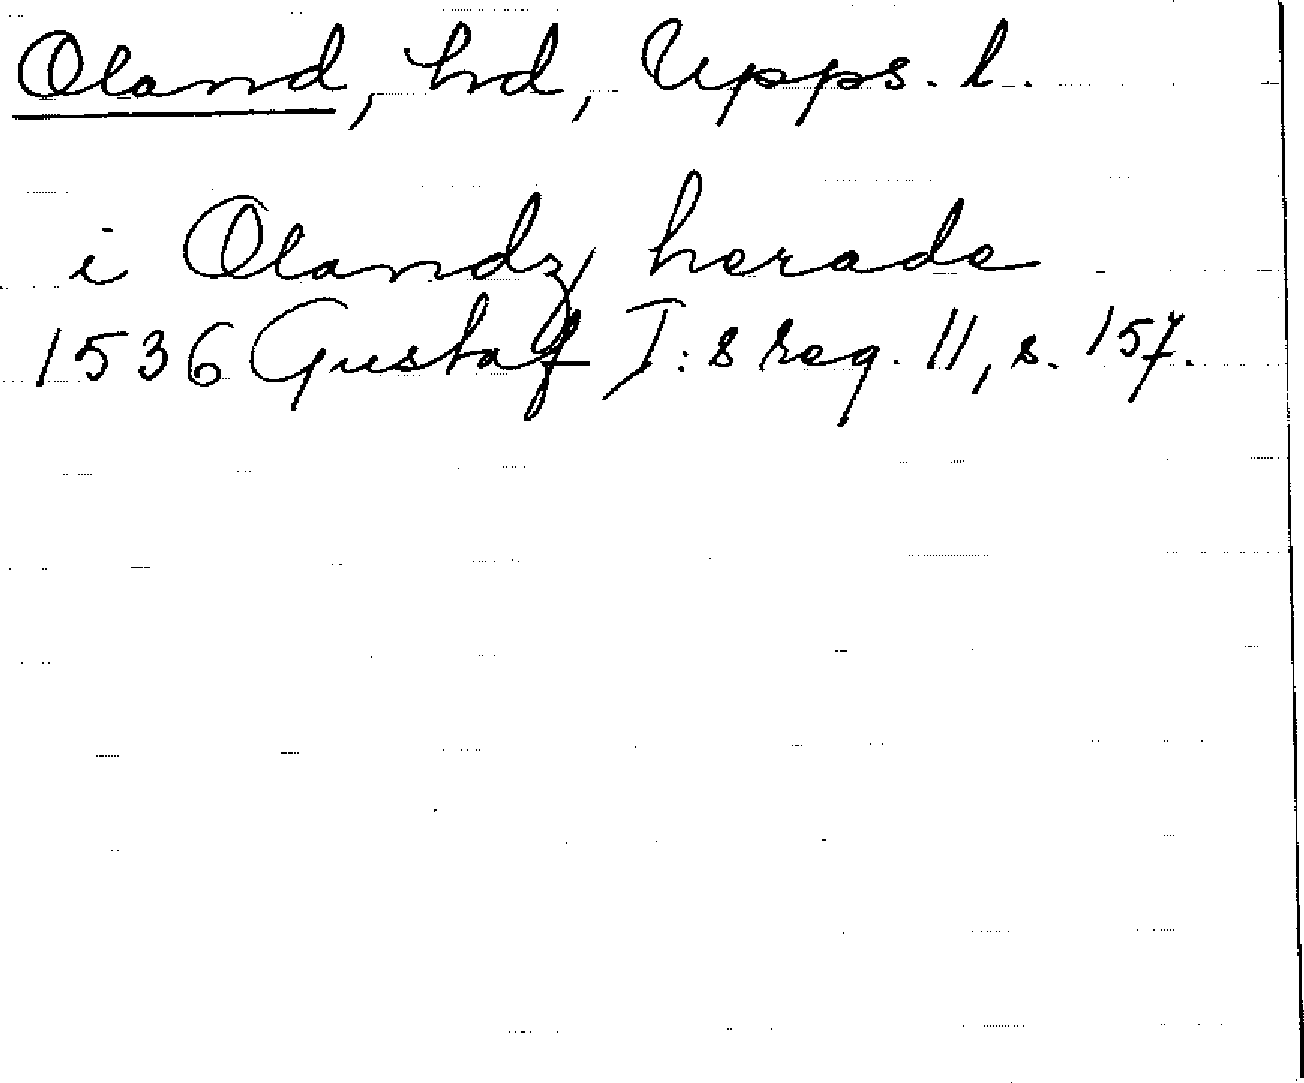 Oland, hd, Upps. l.
i Olandz herade
1536 Gustaf I:s reg. 11, s. 157.